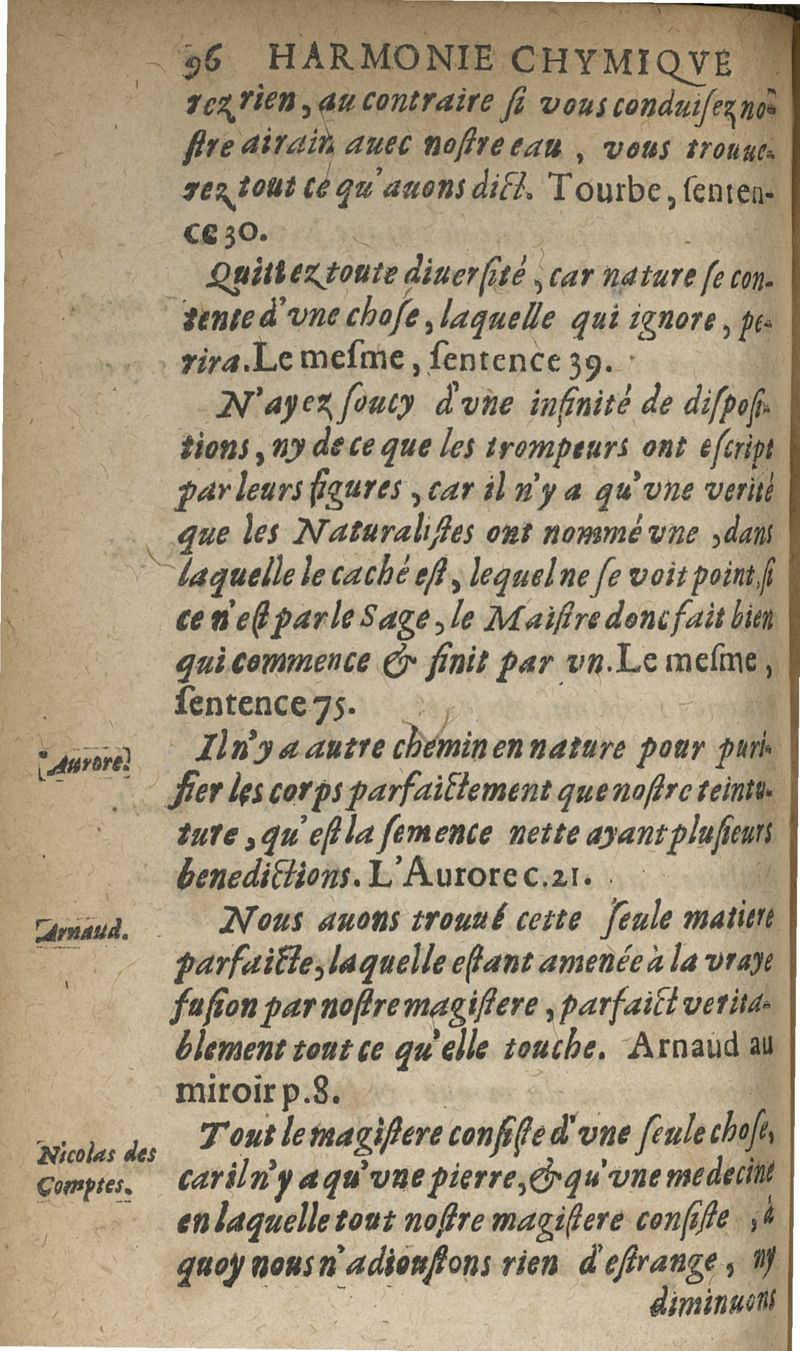 96 HARMONIE CHYMIQVE
rez rien, au contraire ſi vous conduiſez no-
ſtre airain auec noſtre eau, vous trouue-
rez tout ce qu'auons dict. Tourbe, ſenten-
ce 30.
Quittez toute diuerſité, car nature ſe con-
tente d'vne choſe, laquelle qui ignore, pe-
rira. Le meſme, ſentence 39.
N'ayez ſoucy d'vne infinité de diſpoſi-
tions, ny de ce que les trompeurs ont eſcript
par leurs figures, car il n'y a qu'vne verité
que les Naturaliſtes ont nommé vne, dans
laquelle le caché eſt, lequel ne ſe voit point, ſi
ce n'eſt par le Sage, le Maiſtre donc fait bien
qui commence & finit par vn. Le meſme,
ſentence 75.
Aurore.
Il n'y a autre chemin en nature pour puri-
fier les corps parfaictement que noſtre teintu-
ture, qu'eſt la ſemence nette ayant pluſieurs
benedictions. L'Aurore c. 21.
Arnaud.
Nous auons trouué cette ſeule matiere
parfaicte, laquelle eſtant amenée à la vraye
fuſion par noſtre magiſtere, parfaict verita-
blement tout ce qu'elle touche. Arnaud au
miroir p. 8.
Nicolas des
Comptes.
Tout le magiſtere conſiſte d'vne ſeule choſe,
car il n'y a qu'vne pierre, & qu'vne medecine
en laquelle tout noſtre magiſtere conſiſte, à
quoy nous n'adiouſtons rien d'eſtrange, ny
diminuons